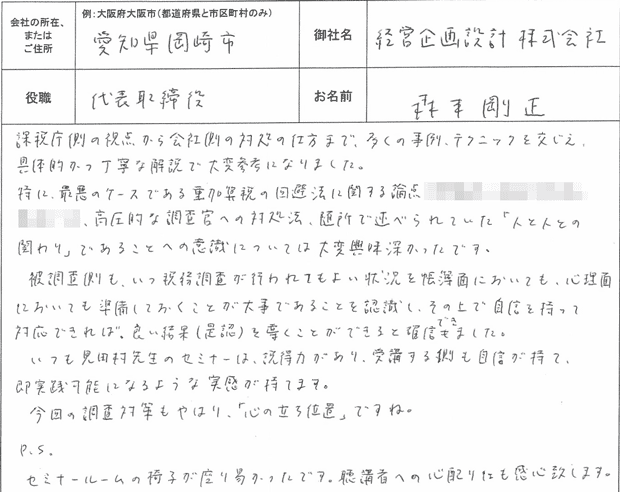 会社の所在、
または
ご住所
例:大阪府大阪市(都道府県と市区町村のみ)
愛知県岡崎市
御社名
経営企画設計 株式会社
役職
代表取締役
お名前
森本 剛正
課税庁側の視点から会社側の対処の仕方まで、多くの事例、テクニックを交じえ、
具体的かつ丁寧な解説で大変参考になりました。
特に、最悪のケースである重加算税の回避法に関する論点
、高圧的な調査官への対処法、随所で述べられていた「人と人との
関わり」であることへの意識については大変興味深かったです。
被調査側も、いつ税務調査が行われてもよい状況を帳簿面においても、心理面
においても準備しておくことが大事であることを認識し、その上で自信を持って
対応できれば、良い結果(是認)を導くことができると確信できました。
いつも見田村先生のセミナーは、説得力があり、受講する側も自信が持て、
即実践可能になるような実感が持てます。
今回の調査対策もやはり、「心の立ち位置」ですね。
P.S.
セミナールームの椅子が座り易かったです。聴講者への心配りにも感心致します。